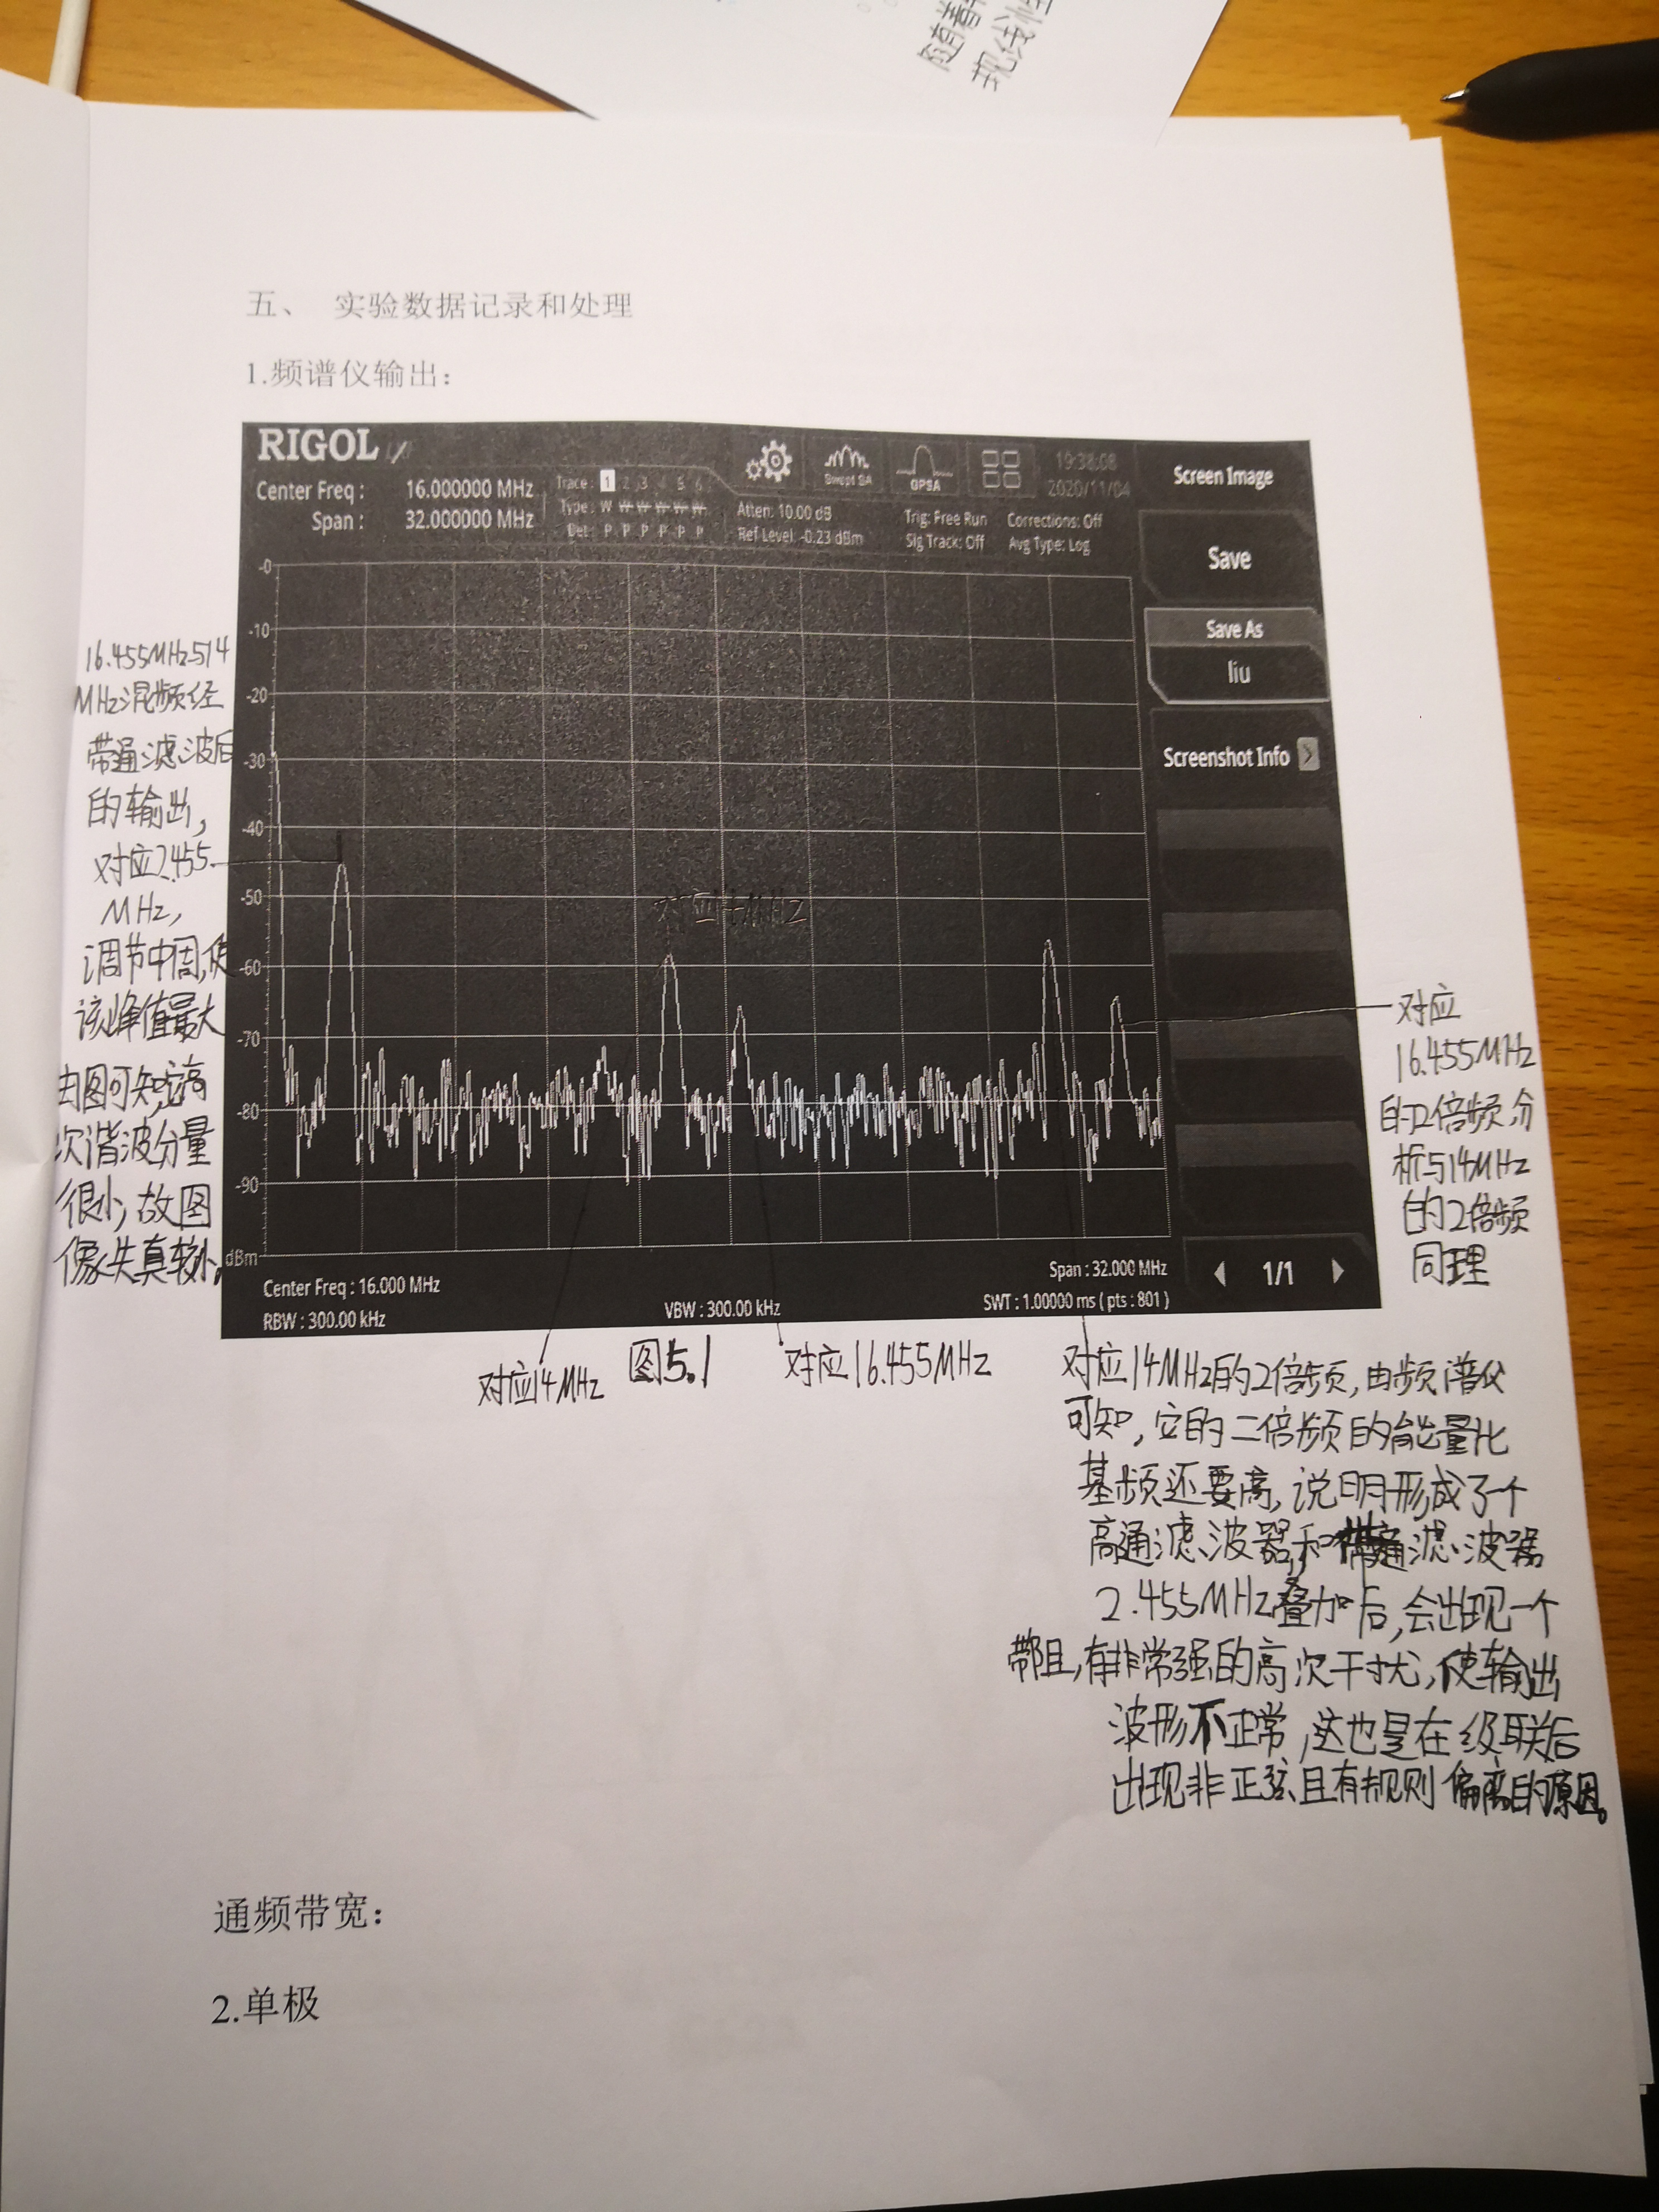 随着
现线性
五、 实验数据记录和处理
1.频谱仪输出：
RIGOL
Center Freq : 16.000000 MHz
Span : 32.000000 MHz
Trace: 1 2 3 4 5 6
Type: W W W W W W
Det: P P P P P P
Swept SA
GPSA
19:38:08
2020/11/04
Atten: 10.00 dB
Ref Level: -0.23 dBm
Trig: Free Run
Sig Track: Off
Corrections: Off
Avg Type: Log
Screen Image
Save
Save As
liu
Screenshot Info
1/1
-0
-10
-20
-30
-40
-50
-60
-70
-80
-90
dBm
对应14MHz
Center Freq : 16.000 MHz
RBW : 300.00 kHz
VBW : 300.00 kHz
Span : 32.000 MHz
SWT : 1.00000 ms ( pts : 801 )
16.455MHz与14
MHz混频经
带通滤波后
的输出，
对应2.455
MHz，
调节中周，使
该峰值最大
由图可知，高
次谐波分量
很小，故图
像失真较小。
对应
16.455MHz
的2倍频，分
析与14MHz
的2倍频
同理
对应14MHz
图5.1
对应16.455MHz
对应14MHz的2倍频，由频谱仪
可知，它的二倍频的能量比
基频还要高，说明形成了个
高通滤波器，和带通滤波器
2.455MHz叠加后，会出现一个
带阻，有非常强的高次干扰，使输出
波形不正常，这也是在级联后
出现非正弦且有规则偏离的原因。
通频带宽：
2.单极